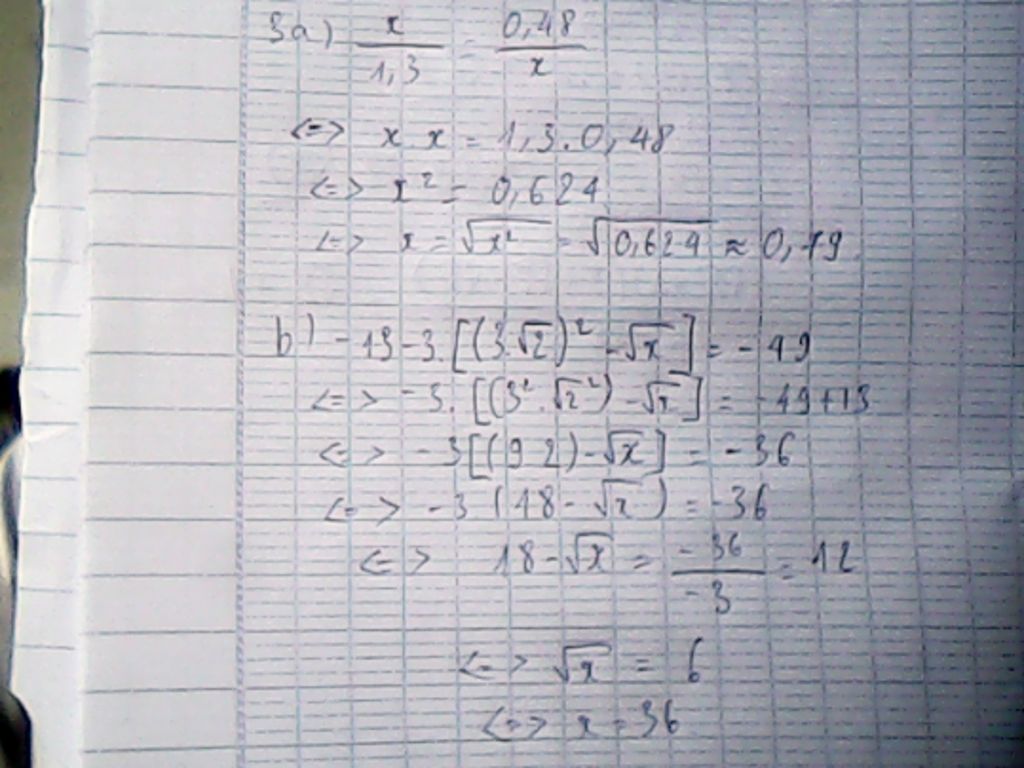 3a) x/1,3 = 0,48/x
<=> x.x = 1,3.0,48
<=> x² = 0,624
<=> x = √x² = √0,624 ≈ 0,79
b) -13-3.[(3.√2)² - √x] = -49
<=> -3.[(3².√2²) - √x] = -49+13
<=> -3[(9.2) - √x] = -36
<=> -3(18 - √x) = -36
<=> 18 - √x = -36/-3 = 12
<=> √x = 6
<=> x = 36